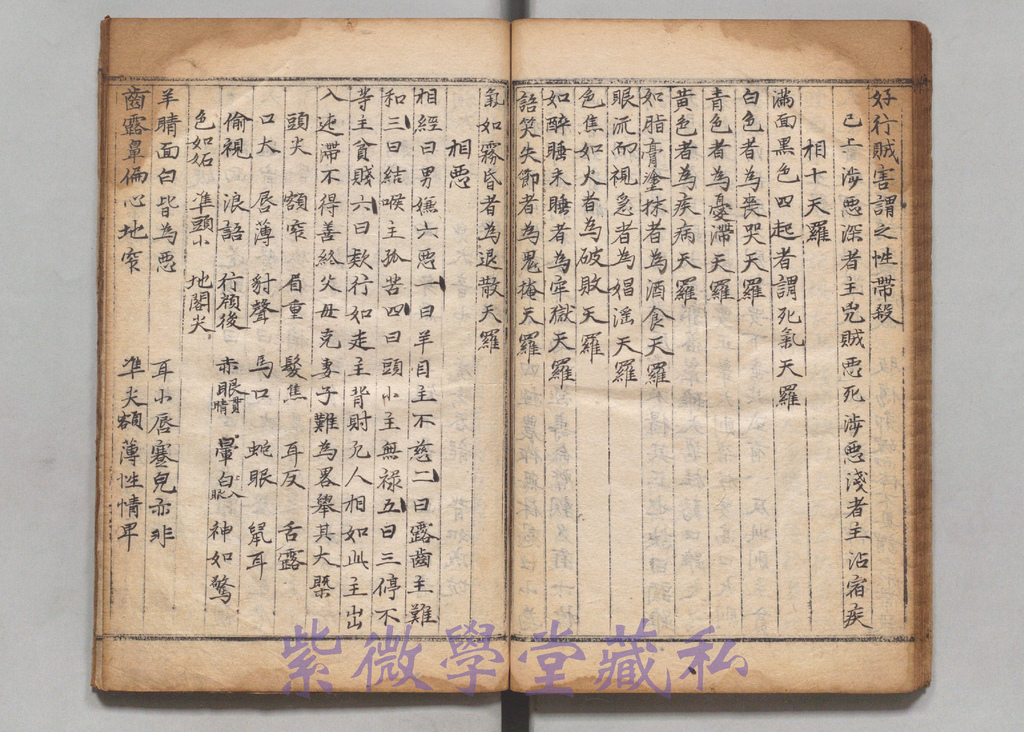 好行賊害謂之性帶殺
已上涉惡深者主兇賊惡死涉惡淺者主沾宿疾
相十天羅
滿面黑色四起者謂死氣天羅
白色者為喪哭天羅
青色者為憂滯天羅
黃色者為疾病天羅
如脂膏塗抹者為酒食天羅
眼流而視急者為猖滛天羅
色焦如火者為破敗天羅
如醉睡未睡者為牢獄天羅
語笑失節者為鬼掩天羅
氣如霧昏者為退散天羅
相惡
相經曰男嫌六惡一曰羊目主不慈二曰露齒主難
和三曰結喉主孤苦四曰頭小主無禄五曰三停不
等主貧賤六曰欵行如走主背財凡人相如此主出
入迍滯不得善終父母克妻子難為畧舉其大槩
頭尖 額窄 眉重 髮焦 耳反 舌露
口大 唇薄 豺聲 馬口 蛇眼 鼠耳
偷視 浪語 行頭後 赤眼貫睛 暈白入眼 神如驚
色如妬 準頭小 地閣尖
羊睛面白皆為惡 耳小唇蹇皃亦非
齒露鼻偏心地窄 準尖額薄性情卑
紫微學堂藏私